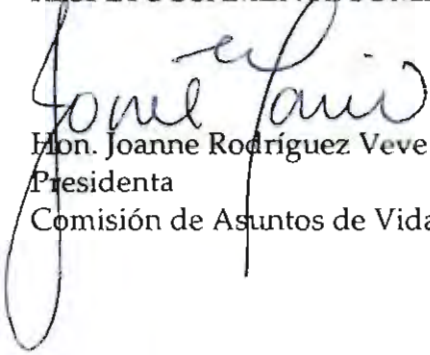 Hon. Joanne Rodríguez Veve
Presidenta
Comisión de Asuntos de Vida